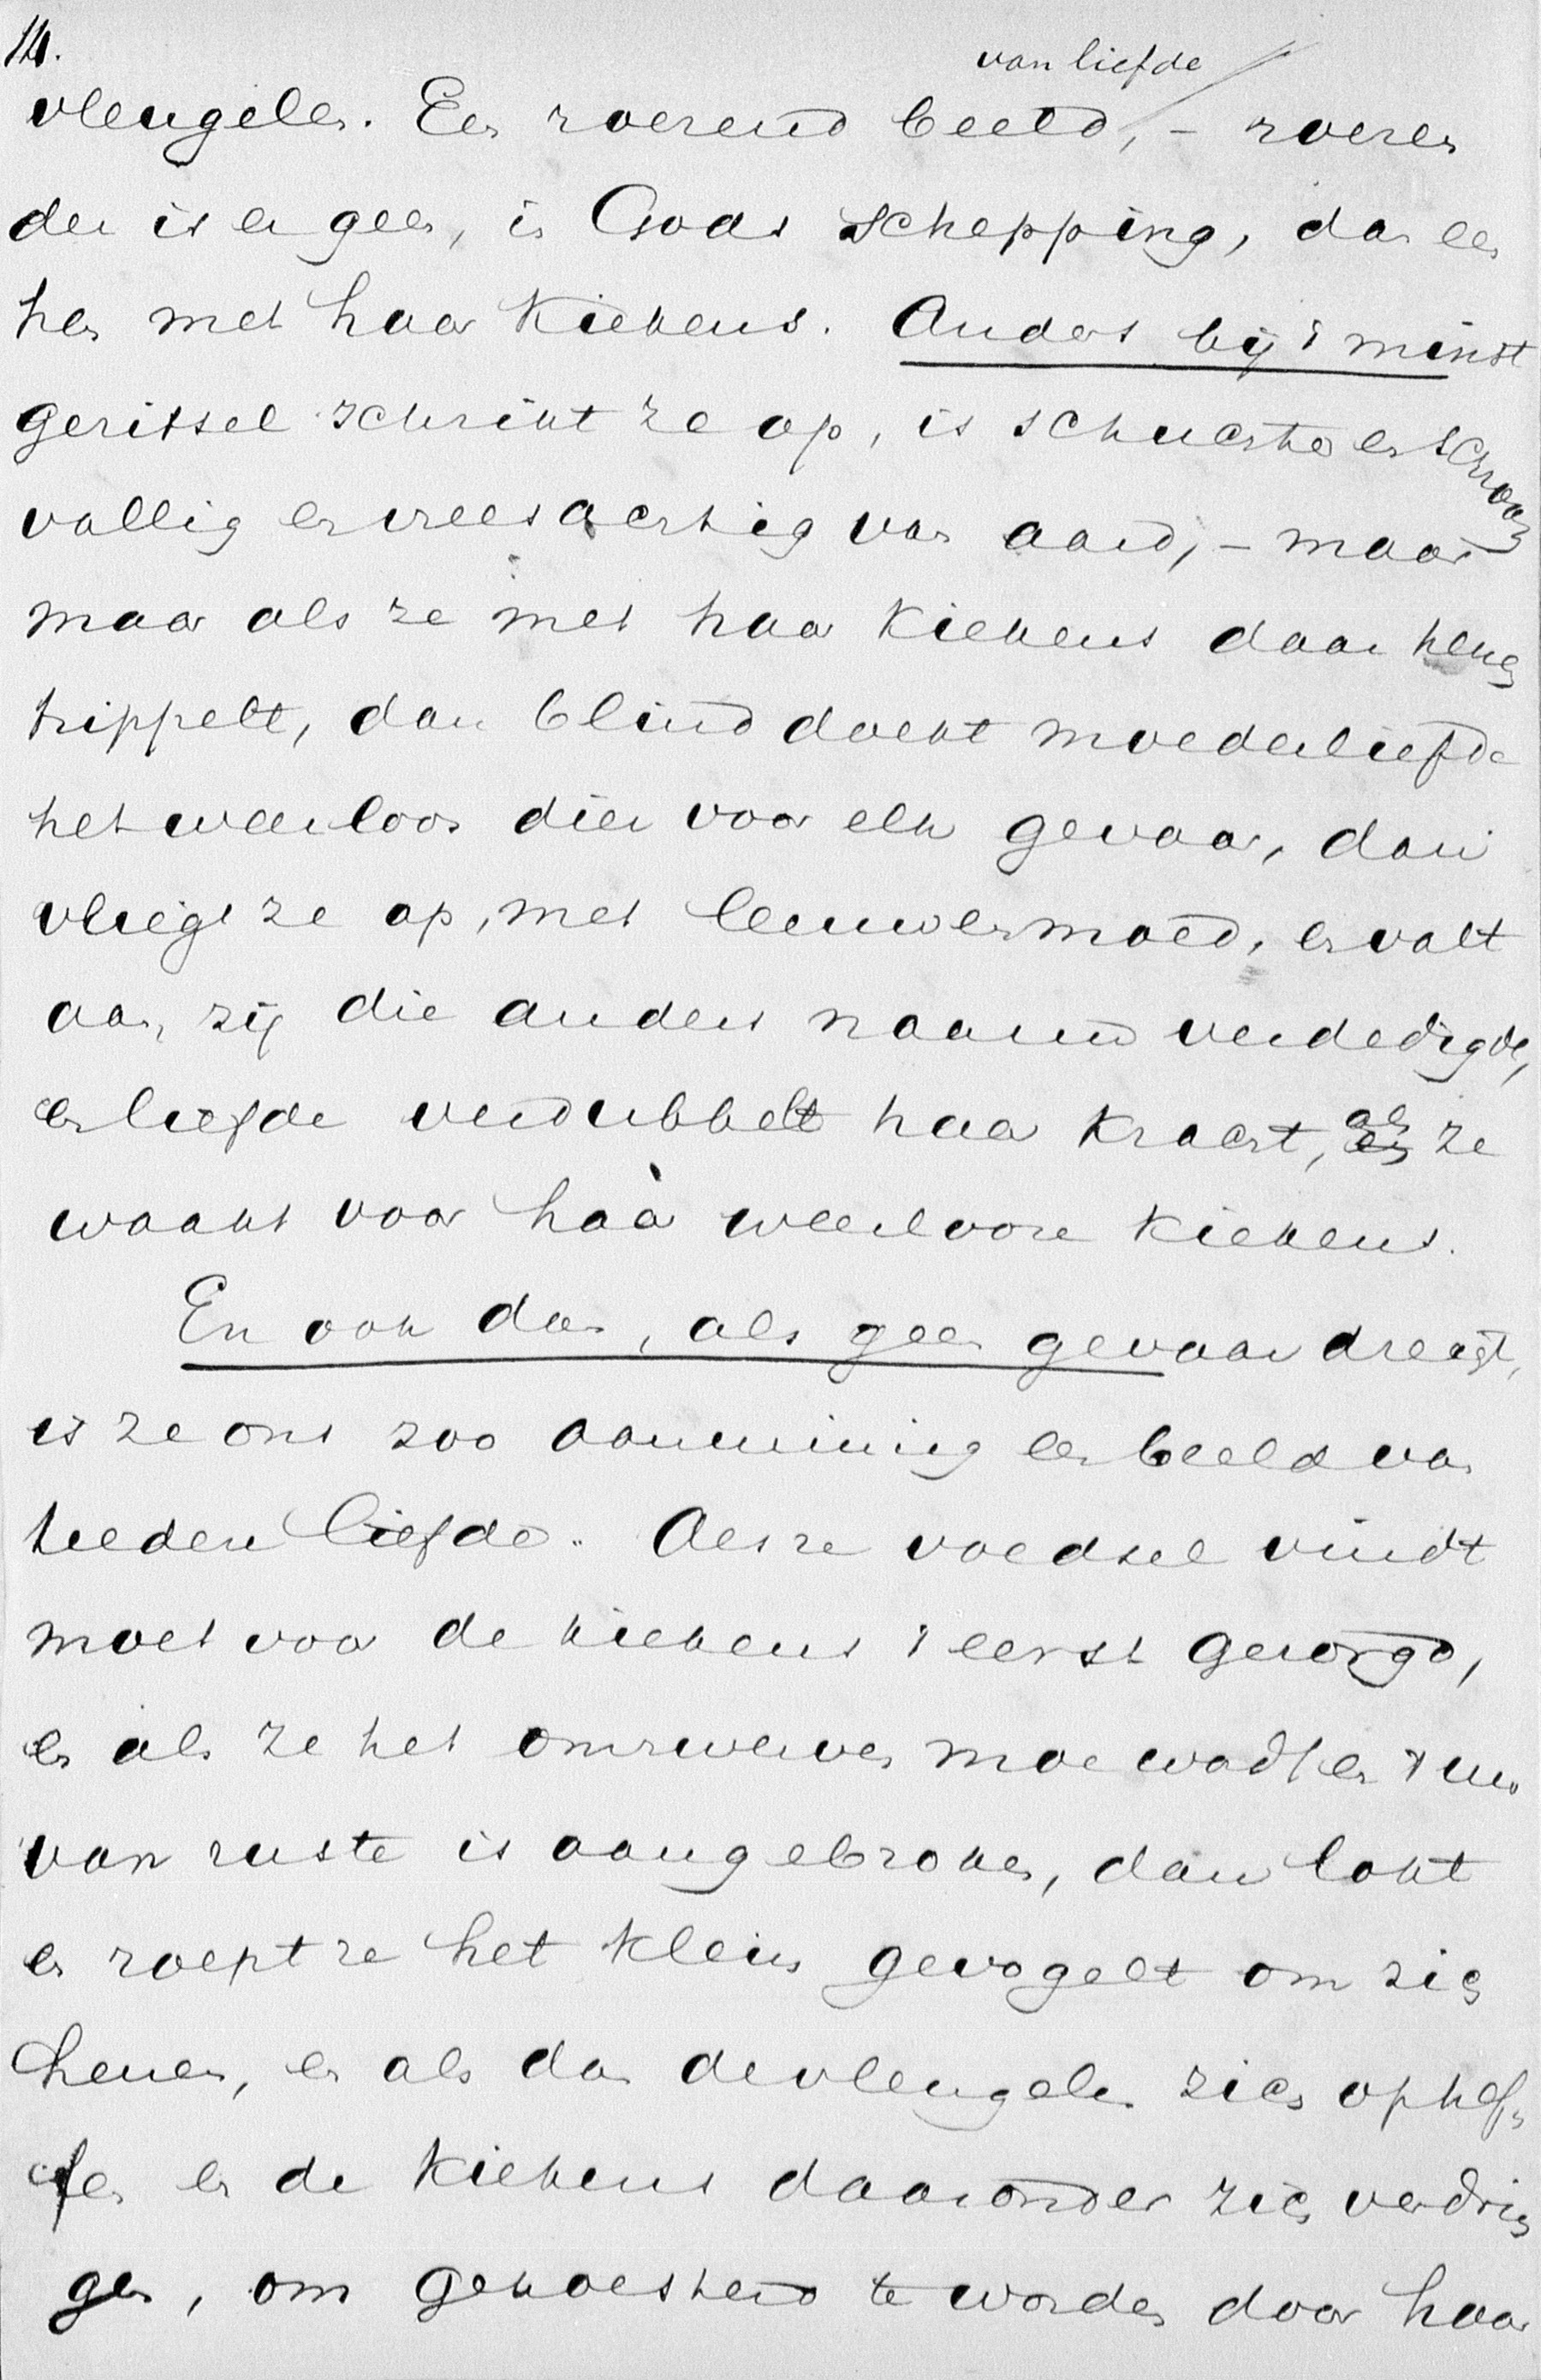 14.
van liefde
vleugelen. Een roerend beeld, – roeren
der is er geen, in Gods schepping, dan een
hen met haar kiekens. Anders bij 't minst
geritsel schrikt ze op, is schuchter en schroom
vallig en vreesachtig van aard, – maar
maar als ze met haar kiekens daar henen
trippelt, dan blinddoekt moederliefde
het weerloos dier voor elk gevaar, dan
vliegt ze op, met leeuwenmoed, en valt
aan, zij die anders naauw verdedigde,
en liefde verdubbelt haar kracht, als ze
waakt voor haar weerlooze kiekens.
En ook dan, als geen gevaar dreigt,
is ze ons zoo aanminnig een beeld van
teedere liefde. Als ze voedsel vindt
moet voor de kiekens 't eerst gezorgd,
en als ze het omzwerven moe wordt en 't uur
van ruste is aangebroken, dan lokt
en roept ze het klein gevogelt om zich
henen, en als dan de vleugelen zich ophef-
fen en de kiekens daaronder zich verdrin
gen, om gekoesterd te worden door haar